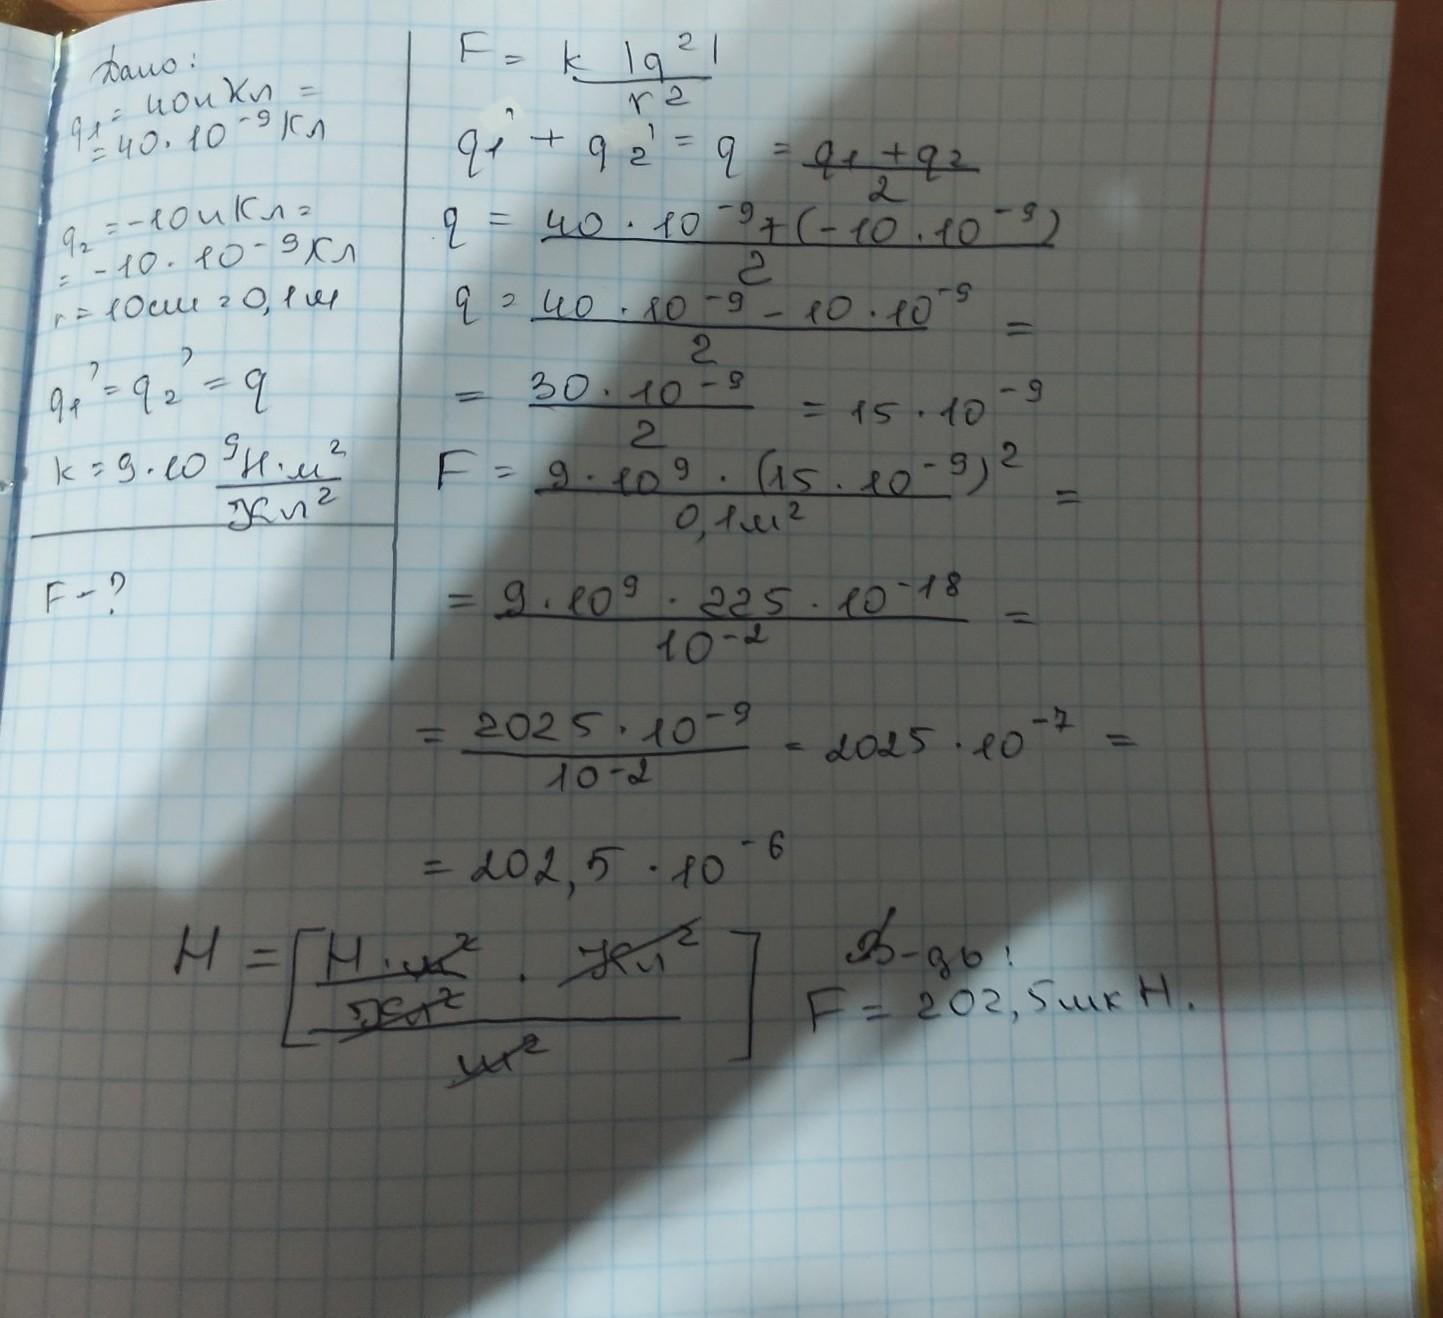 Дано:
q₁ = 40 нКл =
= 40 · 10⁻⁹ Кл
q₂ = -10 нКл =
= -10 · 10⁻⁹ Кл
r = 10 см = 0,1 м
q₁' = q₂' = q
k = 9 · 10⁹ Н·м²/Кл²
F - ?
F = k |q²| / r²
q₁' + q₂' = q = (q₁ + q₂) / 2
q = (40 · 10⁻⁹ + (-10 · 10⁻⁹)) / 2
q = (40 · 10⁻⁹ - 10 · 10⁻⁹) / 2 =
= 30 · 10⁻⁹ / 2 = 15 · 10⁻⁹
F = 9 · 10⁹ · (15 · 10⁻⁹)² / 0,1 м² =
= 9 · 10⁹ · 225 · 10⁻¹⁸ / 10⁻² =
= 2025 · 10⁻⁹ / 10⁻² = 2025 · 10⁻⁷ =
= 202,5 · 10⁻⁶
Н = [Н·м²/Кл² · Кл² / м²]
В-дь:
F = 202,5 мкН.